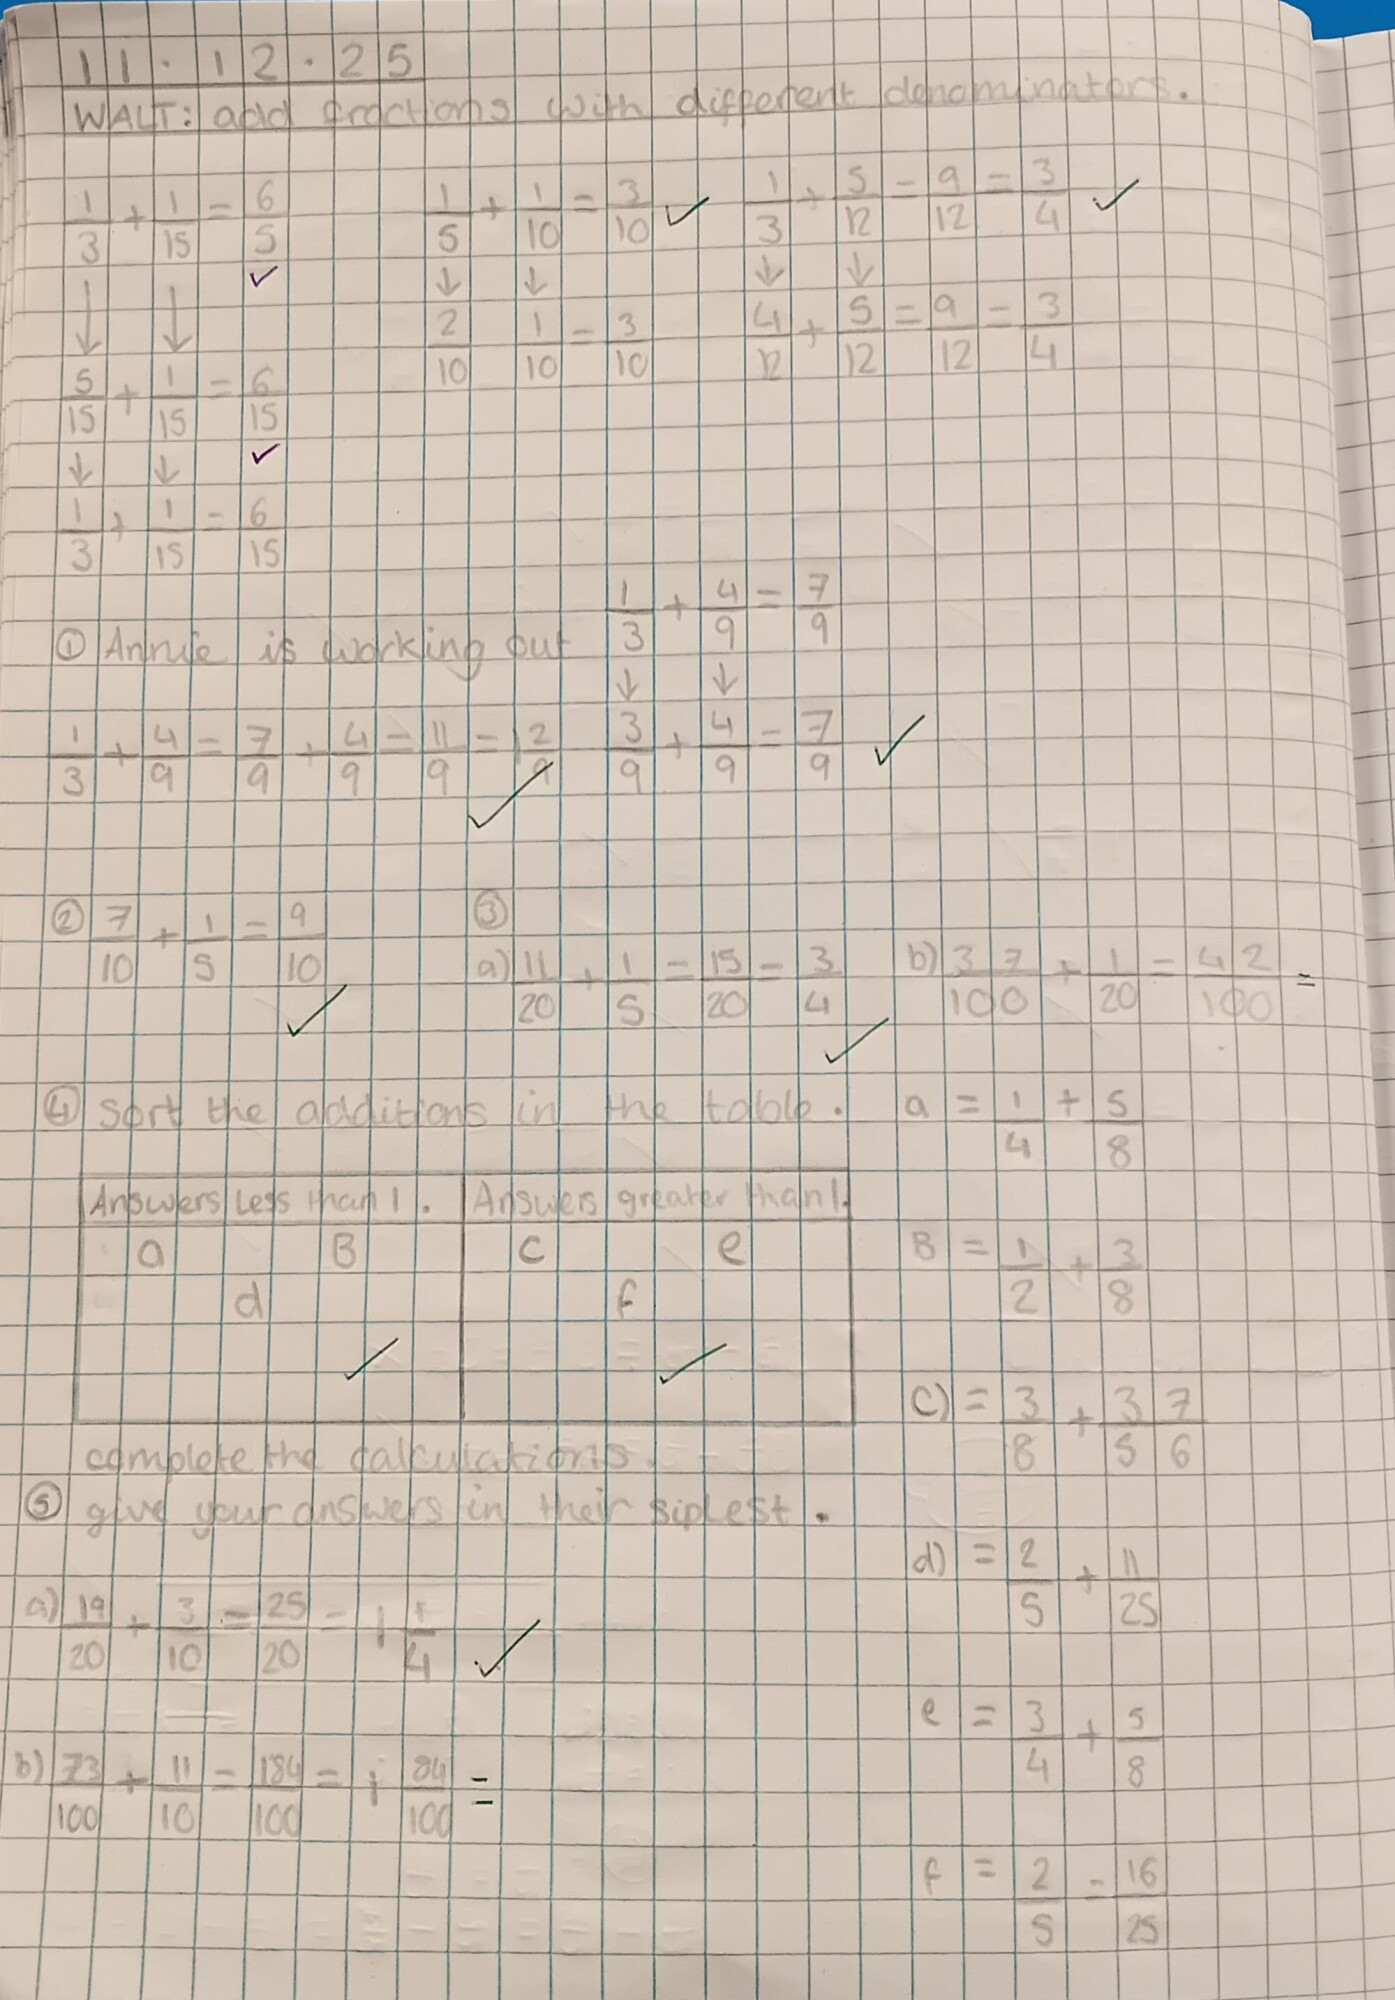 11.12.25
WALT: add fractions with different denominators.
1/3 + 1/15 = 6/5 ✓
↓ ↓
5/15 + 1/15 = 6/15 ✓
↓ ↓
1/3 + 1/15 = 6/15
1/5 + 1/10 = 3/10 ✓
↓ ↓
2/10 1/10 = 3/10
1/3 + 5/12 = 9/12 = 3/4 ✓
↓ ↓
4/12 + 5/12 = 9/12 = 3/4
① Annie is working out
1/3 + 4/9 = 7/9 + 4/9 = 11/9 = 1 2/9 ✓
1/3 + 4/9 = 7/9
↓ ↓
3/9 + 4/9 = 7/9 ✓
② 7/10 + 1/5 = 9/10 ✓
③
a) 11/20 + 1/5 = 15/20 = 3/4 ✓
b) 37/100 + 1/20 = 42/100 =
④ Sort the additions in the table.
Answers less than 1. Answers greater than 1.
a B c e
d f
✓ ✓
a = 1/4 + 5/8
B = 1/2 + 3/8
C) = 3/8 + 37/56
d) = 2/5 + 11/25
e = 3/4 + 5/8
f = 2/5 = 16/25
complete the calculations.
⑤ give your answers in their siplest.
a) 19/20 + 3/10 = 25/20 = 1 1/4 ✓
b) 73/100 + 11/10 = 184/100 = 1 84/100 =